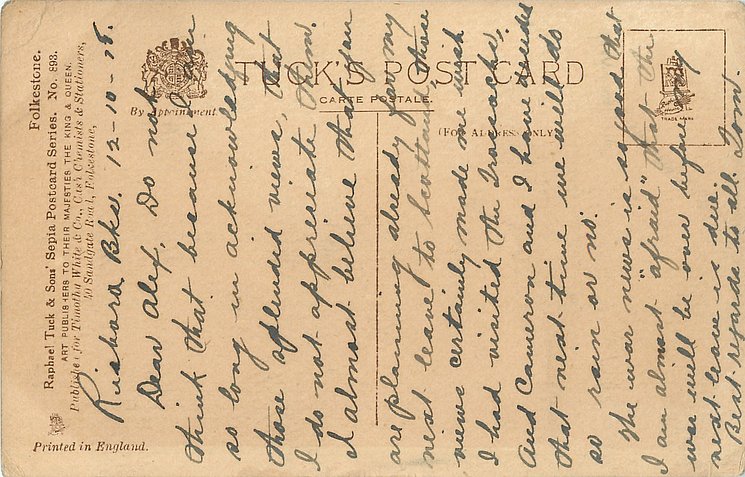 Folkestone.
Raphael Tuck & Sons' Sepia Postcard Series. No. 893.
ART PUBLISHERS TO THEIR MAJESTIES THE KING & QUEEN.
for Timothy White & Co., Cash Chemists & Stationers,
Sandgate Road, Folkestone,
Printed in England.
By Appointment.
TUCK'S POST CARD
CARTE POSTALE.
(FOR ADDRESS ONLY)
TRADE MARK
Bks. 12-10-18.
Dear Alex, Do not
think that because I am
so long in acknowledging
those splendid views, that
I do not appreciate them.
I almost believe that you
are planning already for my
next leave to Scotland, those
views certainly made me wish
I had visited the Trossachs,
And Cameron and I have
that next time we will do
so rain or no.
The war news is so good that
I am almost "afraid" that the
war will be over before my
next leave is due.
Best regards to all. Tom.